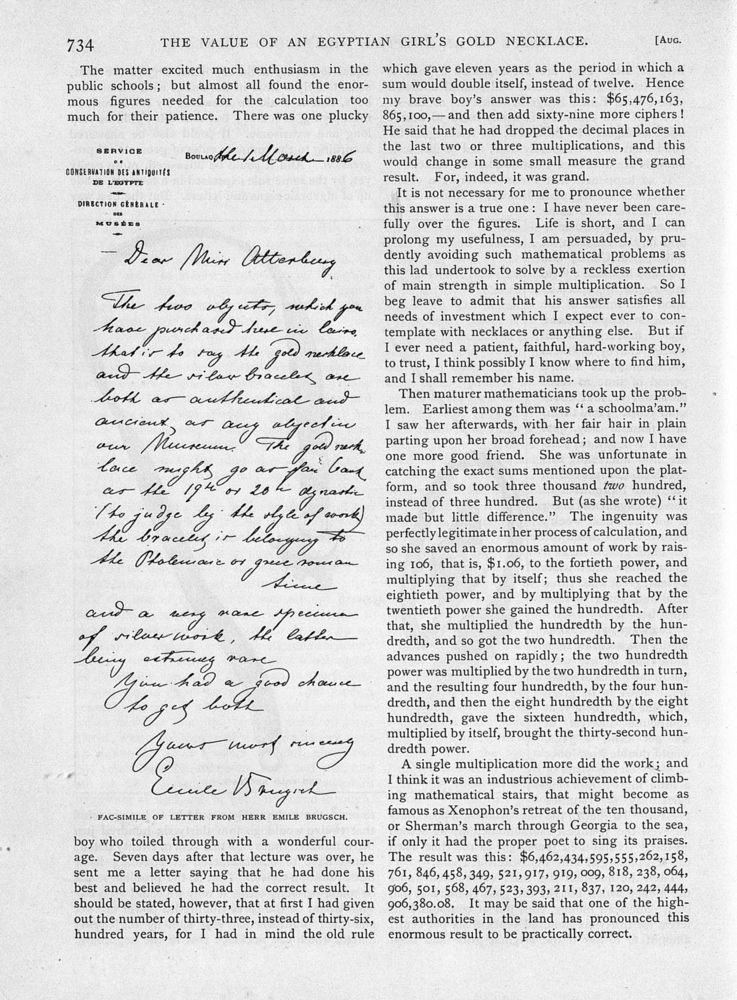 734
THE VALUE OF AN EGYPTIAN GIRL'S GOLD NECKLACE.
[AUG.
The matter excited much enthusiasm in the
public schools; but almost all found the enor-
mous figures needed for the calculation too
much for their patience. There was one plucky
SERVICE
DE
CONSERVATION DES ANTIQUITÉS
DE L'EGYPTE
DIRECTION GÉNÉRALE
DES
MUSÉES
BOULAQ the 1 March 1886
Dear Miss Atterbury
The two objects, which you
have purchased here in Cairo,
that is to say the gold necklace
and the silver bracelet, are
both as authentical and
ancient as any object in
our Museum. The gold neck
lace might go as far back
as the 19th or 20th dynastie
(to judge by the style of work)
the bracelet is belonging to
the Ptolemaic or greec roman
time
and a very rare specimen
of silver work, the latter
being extremely rare
You had a good chance
to get both
Yours most sincerely
Emile Brugsch
FAC-SIMILE OF LETTER FROM HERR EMILE BRUGSCH.
boy who toiled through with a wonderful cour-
age. Seven days after that lecture was over, he
sent me a letter saying that he had done his
best and believed he had the correct result. It
should be stated, however, that at first I had given
out the number of thirty-three, instead of thirty-six,
hundred years, for I had in mind the old rule
which gave eleven years as the period in which a
sum would double itself, instead of twelve. Hence
my brave boy's answer was this: $65,476,163,
865,100,—and then add sixty-nine more ciphers!
He said that he had dropped the decimal places in
the last two or three multiplications, and this
would change in some small measure the grand
result. For, indeed, it was grand.
It is not necessary for me to pronounce whether
this answer is a true one: I have never been care-
fully over the figures. Life is short, and I can
prolong my usefulness, I am persuaded, by pru-
dently avoiding such mathematical problems as
this lad undertook to solve by a reckless exertion
of main strength in simple multiplication. So I
beg leave to admit that his answer satisfies all
needs of investment which I expect ever to con-
template with necklaces or anything else. But if
I ever need a patient, faithful, hard-working boy,
to trust, I think possibly I know where to find him,
and I shall remember his name.
Then maturer mathematicians took up the prob-
lem. Earliest among them was "a schoolma'am."
I saw her afterwards, with her fair hair in plain
parting upon her broad forehead; and now I have
one more good friend. She was unfortunate in
catching the exact sums mentioned upon the plat-
form, and so took three thousand two hundred,
instead of three hundred. But (as she wrote) "it
made but little difference." The ingenuity was
perfectly legitimate in her process of calculation, and
so she saved an enormous amount of work by rais-
ing 106, that is, $1.06, to the fortieth power, and
multiplying that by itself; thus she reached the
eightieth power, and by multiplying that by the
twentieth power she gained the hundredth. After
that, she multiplied the hundredth by the hun-
dredth, and so got the two hundredth. Then the
advances pushed on rapidly; the two hundredth
power was multiplied by the two hundredth in turn,
and the resulting four hundredth, by the four hun-
dredth, and then the eight hundredth by the eight
hundredth, gave the sixteen hundredth, which,
multiplied by itself, brought the thirty-second hun-
dredth power.
A single multiplication more did the work; and
I think it was an industrious achievement of climb-
ing mathematical stairs, that might become as
famous as Xenophon's retreat of the ten thousand,
or Sherman's march through Georgia to the sea,
if only it had the proper poet to sing its praises.
The result was this: $6,462,434,595,555,262,158,
761, 846,458,349, 521,917, 919,009,818, 238, 064,
906, 501, 568, 467, 523, 393, 211, 837, 120, 242, 444,
906,380.08. It may be said that one of the high-
est authorities in the land has pronounced this
enormous result to be practically correct.